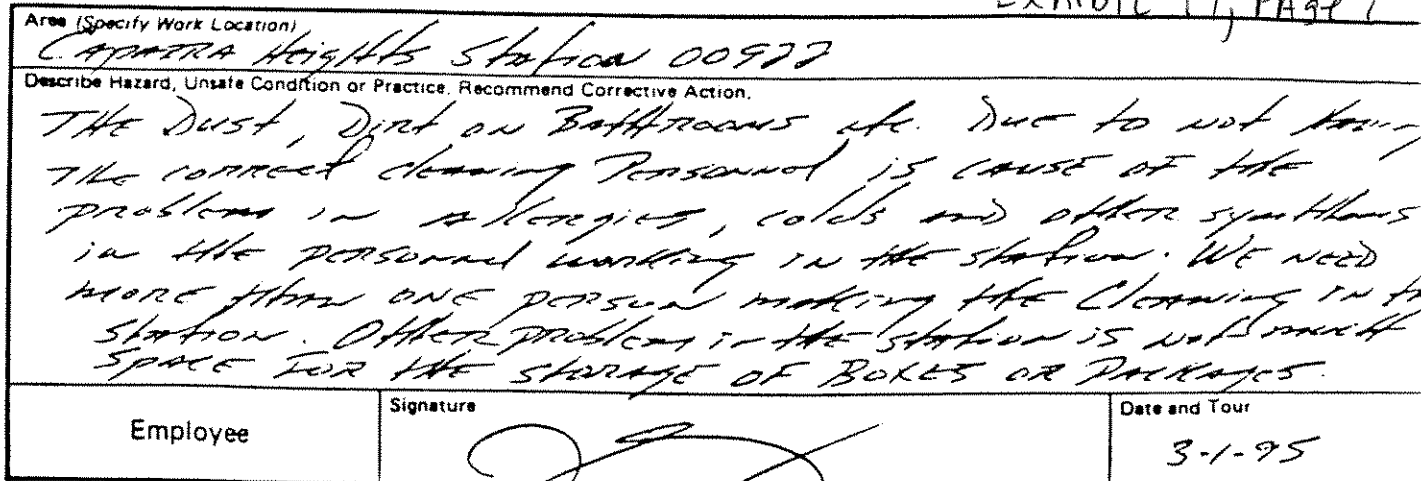 EXHIBIT 17, PAGE 1
Area (Specify Work Location)
CAPARRA HEIGHTS Station 00922
Describe Hazard, Unsafe Condition or Practice. Recommend Corrective Action.
THE Dust, Dirt on Bathrooms etc. Due to not Having
THE correct cleaning Personnel is cause OF the
problems in allergies, colds and other sympthoms
in the personnel working in the station. WE NEED
MORE than ONE person making the Cleaning IN the
station. Other problem in the station is not much
SPACE FOR the storage OF BOXES OR PACKAGES.
Employee
Signature
Date and Tour
3-1-95